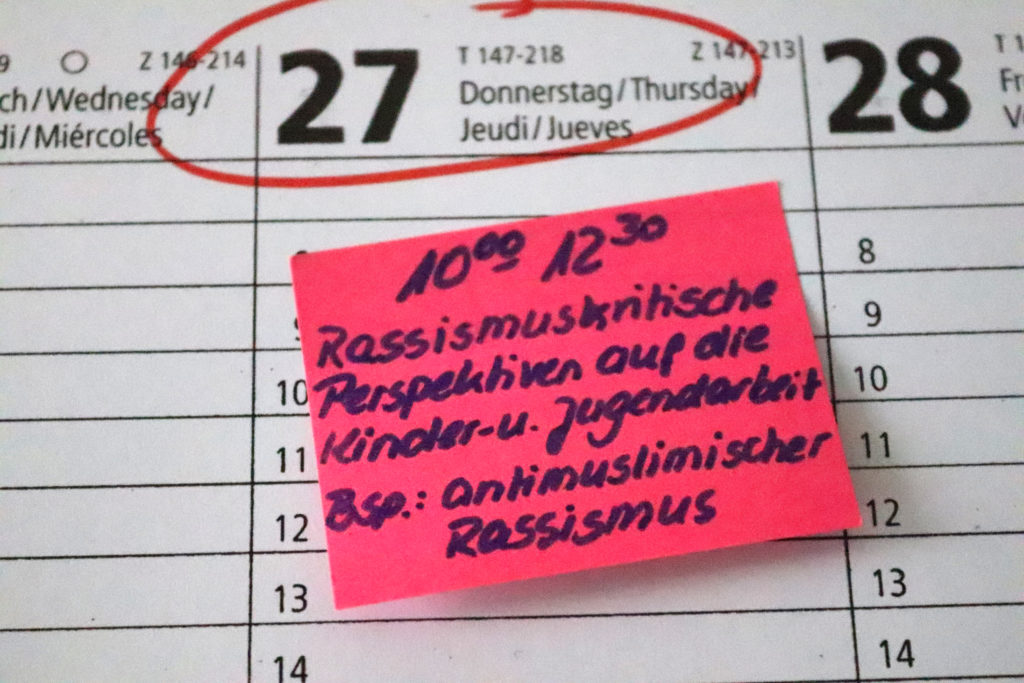 9 Z 146-214
27 T 147-218 Z 147-213
28 T 1
ch/Wednesday/
di/Miércoles
Donnerstag/Thursday/
Jeudi/Jueves
Fr
10⁰⁰ 12³⁰
Rassismuskritische
Perspektiven auf die
Kinder-u. Jugendarbeit
Bsp.: antimuslimischer
Rassismus
10
11
12
13
14
8
9
10
11
12
13
14